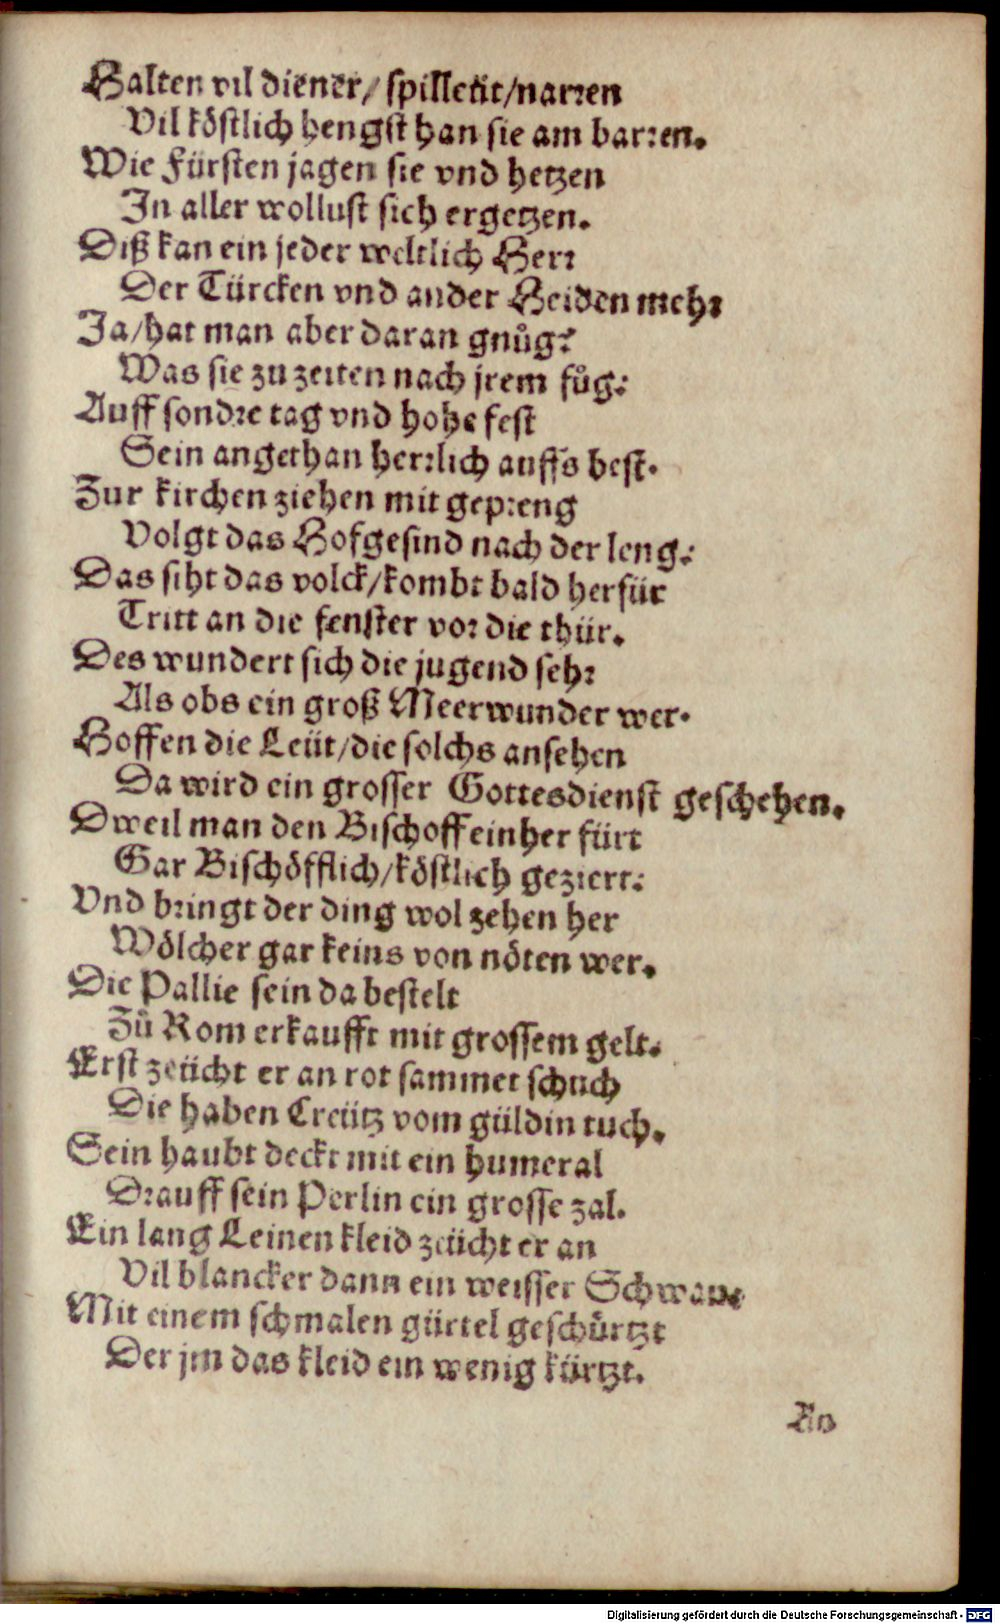 Halten vil diener/ spilleüt/narren
Vil köstlich hengst han sie am barren.
Wie Fürsten jagen sie vnd hetzen
In aller wollust sich ergetzen.
Diß kan ein jeder weltlich Herr
Der Türcken vnd ander Heiden mehr
Ja/hat man aber daran gnůg?
Was sie zu zeiten nach jrem fůg:
Auff sondre tag vnd hohe fest
Sein angethan herrlich auffs best.
Zur kirchen ziehen mit gepreng
Volgt das Hofgesind nach der leng:
Das siht das volck/kombt bald herfür
Tritt an die fenster vor die thür.
Des wundert sich die jugend sehr
Als obs ein groß Meerwunder wer.
Hoffen die Leüt/die solchs ansehen
Da wird ein grosser Gottesdienst geschehen.
Dweil man den Bischoff einher fürt
Gar Bischöfflich/köstlich geziert:
Vnd bringt der ding wol zehen her
Wölcher gar keins von nöten wer.
Die Pallie sein da bestelt
Zů Rom erkaufft mit grossem gelt.
Erst zeücht er an rot sammet schuch
Die haben Creütz vom güldin tuch.
Sein haubt deckt mit ein humeral
Drauff sein Perlin ein grosse zal.
Ein lang Leinen kleid zeücht er an
Vil blancker dann ein weisser Schwan.
Mit einem schmalen gürtel geschürtzt
Der jm das kleid ein wenig kürtzt.
An
Digitalisierung gefördert durch die Deutsche Forschungsgemeinschaft - DFG